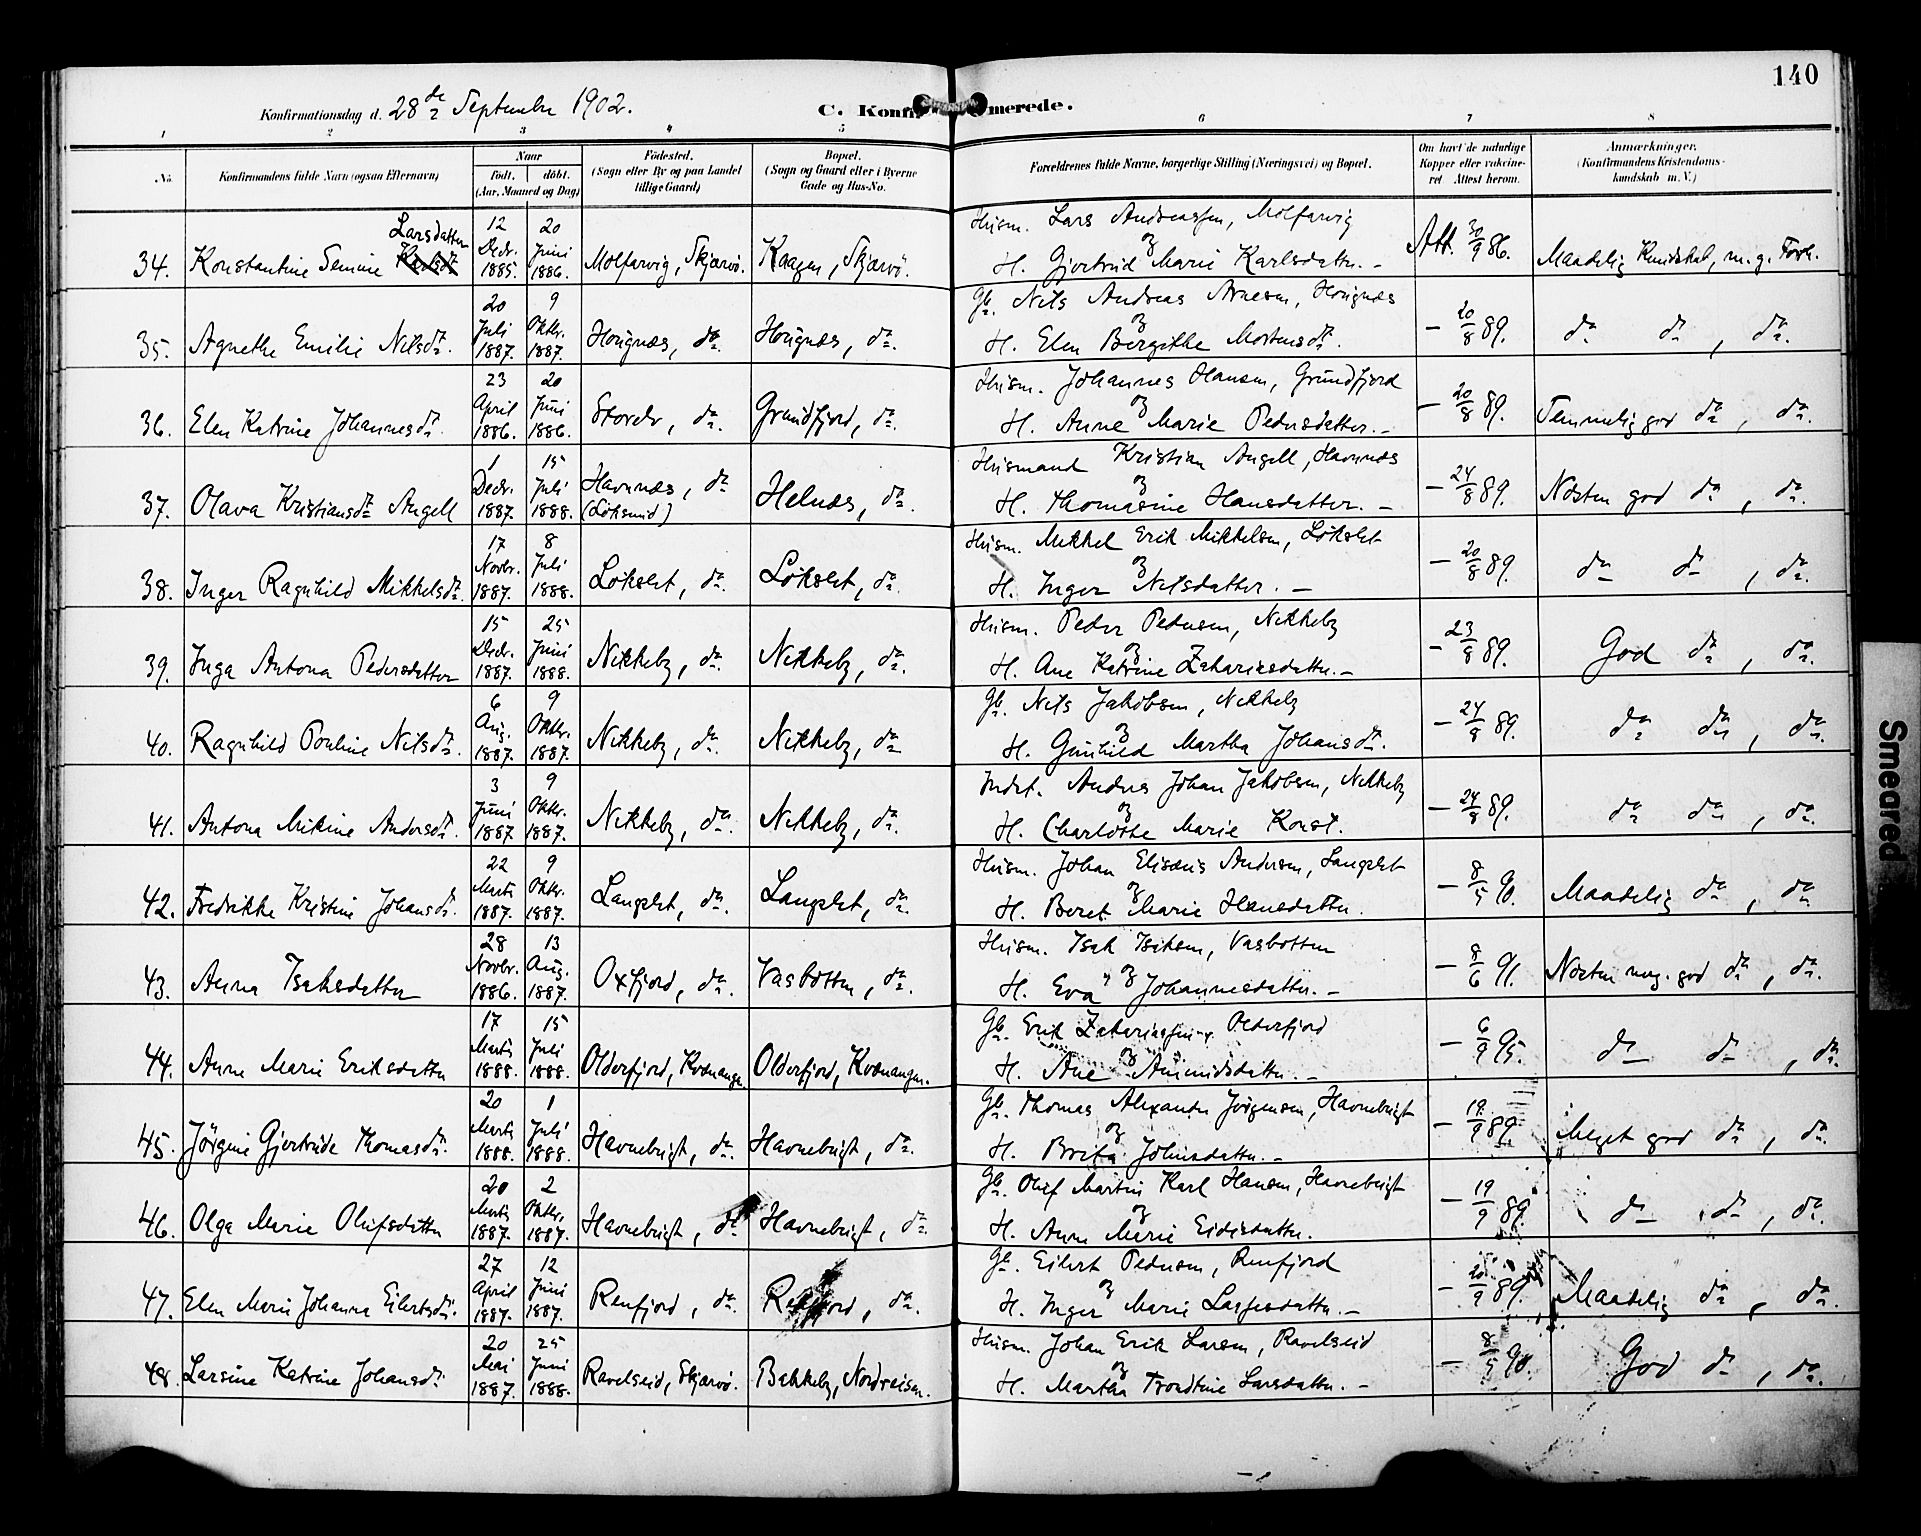 140
Konfirmationsdag d. 28de September 1902.
C. Konfirmerede.
1 2 3 4 5 6 7 8
No.
Konfirmandens fulde Navn (ogsaa Efternavn)
Naar
Født. døbt.
(Aar, Maaned og Dag)
Fødested.
(Sogn eller By og paa Landet
tillige Gaard)
Bopæl.
(Sogn og Gaard eller i Byerne
Gade og Hus-No.
Forældrenes fulde Navne, borgerlige Stilling (Næringsvei) og Bopæl.
Om havt de naturlige
Kopper eller vaccine-
ret. Attest herom.
Anmærkninger.
(Konfirmandens Kristendoms-
kundskab m. V.)
34. Konstantine Semine Larsdatter 12 Decbr. 1885. 20 Juni 1886. Molfarvig, Skjærvö. Kaagen, Skjærvö.
Husm. Lars Andreassen, Molfarvig
og
H. Gjertrud Marie Karlsdatter. –
Att. 30/9 86. Maadelig Kundskab, m. g. Forh.
35. Agnethe Emilie Nilsdtr. 20 Juli 1887. 9 Oktbr. 1887. Hougnæs, do. Hougnæs, do.
Gb. Nils Andreas Arnesen, Hougnæs
og
H. Elen Bergithe Mortensdtr.
– 20/8 89. do do, do.
36. Elen Katrine Johannesdtr. 23 April 1886. 20 Juni 1886. Storelv, do. Grundfjord, do.
Husm. Johannes Hansen, Grundfjord
og
H. Anne Marie Pedersdatter. –
– 20/8 89. Temmelig god do, do.
37. Olava Kristiansdtr Angell 1 Decbr. 1887. 15 Juli 1888. Havnnæs, do (Løksund) Helnæs, do.
Husmand Kristian Angell, Havnnæs
og
H. Thomasine Hansdatter. –
– 24/8 89. Næsten god do, do.
38. Inger Ragnhild Mikkelsdtr. 17 Novbr. 1887. 8 Juli 1888. Løkslet, do. Løkslet, do.
Husm. Mikkel Erik Mikkelsen, Løkslet
og
H. Inger Nilsdatter. –
– 20/8 89. do do, do.
39. Inga Antona Pedersdatter 15 Decbr. 1887. 25 Juni 1888. Nikkeby, do. Nikkeby, do.
Husm. Peder Pedersen, Nikkeby
og
H. Ane Katrine Zakariasdatter. –
– 23/8 89. God do, do.
40. Ragnhild Pouline Nilsdtr. 6 Aug. 1887. 9 Oktbr. 1887. Nikkeby, do. Nikkeby, do
Gb. Nils Jakobsen, Nikkeby
og
H. Gunhild Martha Johansdtr.
– 24/8 89. do do, do.
41. Antona Mikine Andersdtr. 3 Juni 1887. 9 Oktbr. 1887. Nikkeby, do. Nikkeby, do.
Indst. Anders Johan Jakobsen, Nikkeby
og
H. Charlotte Marie Konst.
– 24/8 89. do do, do.
42. Fredrikke Kristine Johansdtr. 22 Marts 1887. 9 Oktbr. 1887. Langslet, do. Langslet, do.
Husm. Johan Elisæus Andersen, Langslet
og
H. Beret Marie Hansdatter.
– 8/5 90. Maadelig do, do
43. Anna Isaksdatter 28 Novbr. 1886. 13 Aug. 1887. Oxfjord, do. Vasbotten, do.
Husm. Isak Isaksen, Vasbotten
og
H. Eva Johannesdatter. –
– 8/6 91. Næsten meg. god do, do.
44. Anne Marie Eriksdatter 17 Marts 1888. 15 Juli 1888. Olderfjord, Kvænangen Olderfjord, Kvænangen.
Gb. Erik Zakariassen, Olderfjord
og
H. Ane Amundsdatter. –
– 6/9 95. do do, do.
45. Jörgine Gjertrude Thomasdtr. 20 Marts 1888. 1 Juli 1888. Havnebugt, do. Havnebugt, do.
Gb. Thomas Alexander Jörgensen, Havnebugt
og
H. Brita Johnsdatter. –
– 19/9 89. Meget god do, do.
46. Olga Marie Olufsdatter 20 Marts 1887. 2 Oktbr. 1887. Havnebugt, do Havnebugt, do.
Gb. Oluf Martin Karl Hansen, Havnebugt
og
H. Anne Marie Eidisdatter.
– 19/9 89. do do, do.
47. Elen Marie Johanna Eilertsdtr. 27 April 1887. 12 Juni 1887. Renfjord, do. Renfjord, do.
Gb. Eilert Pedersen, Renfjord
og
H. Inger Marie Lassesdatter. –
– 20/9 89. Maadelig do, do.
48. Larsine Katrine Johansdtr. 20 Mai 1887. 25 Juni 1888. Ravelseid, Skjærvö. Bakkeby, Nordreisen.
Husm. Johan Erik Larsen, Ravelseid
og
H. Martha Trondtine Larsdatter. –
– 8/5 90. God do, do.
Smeared